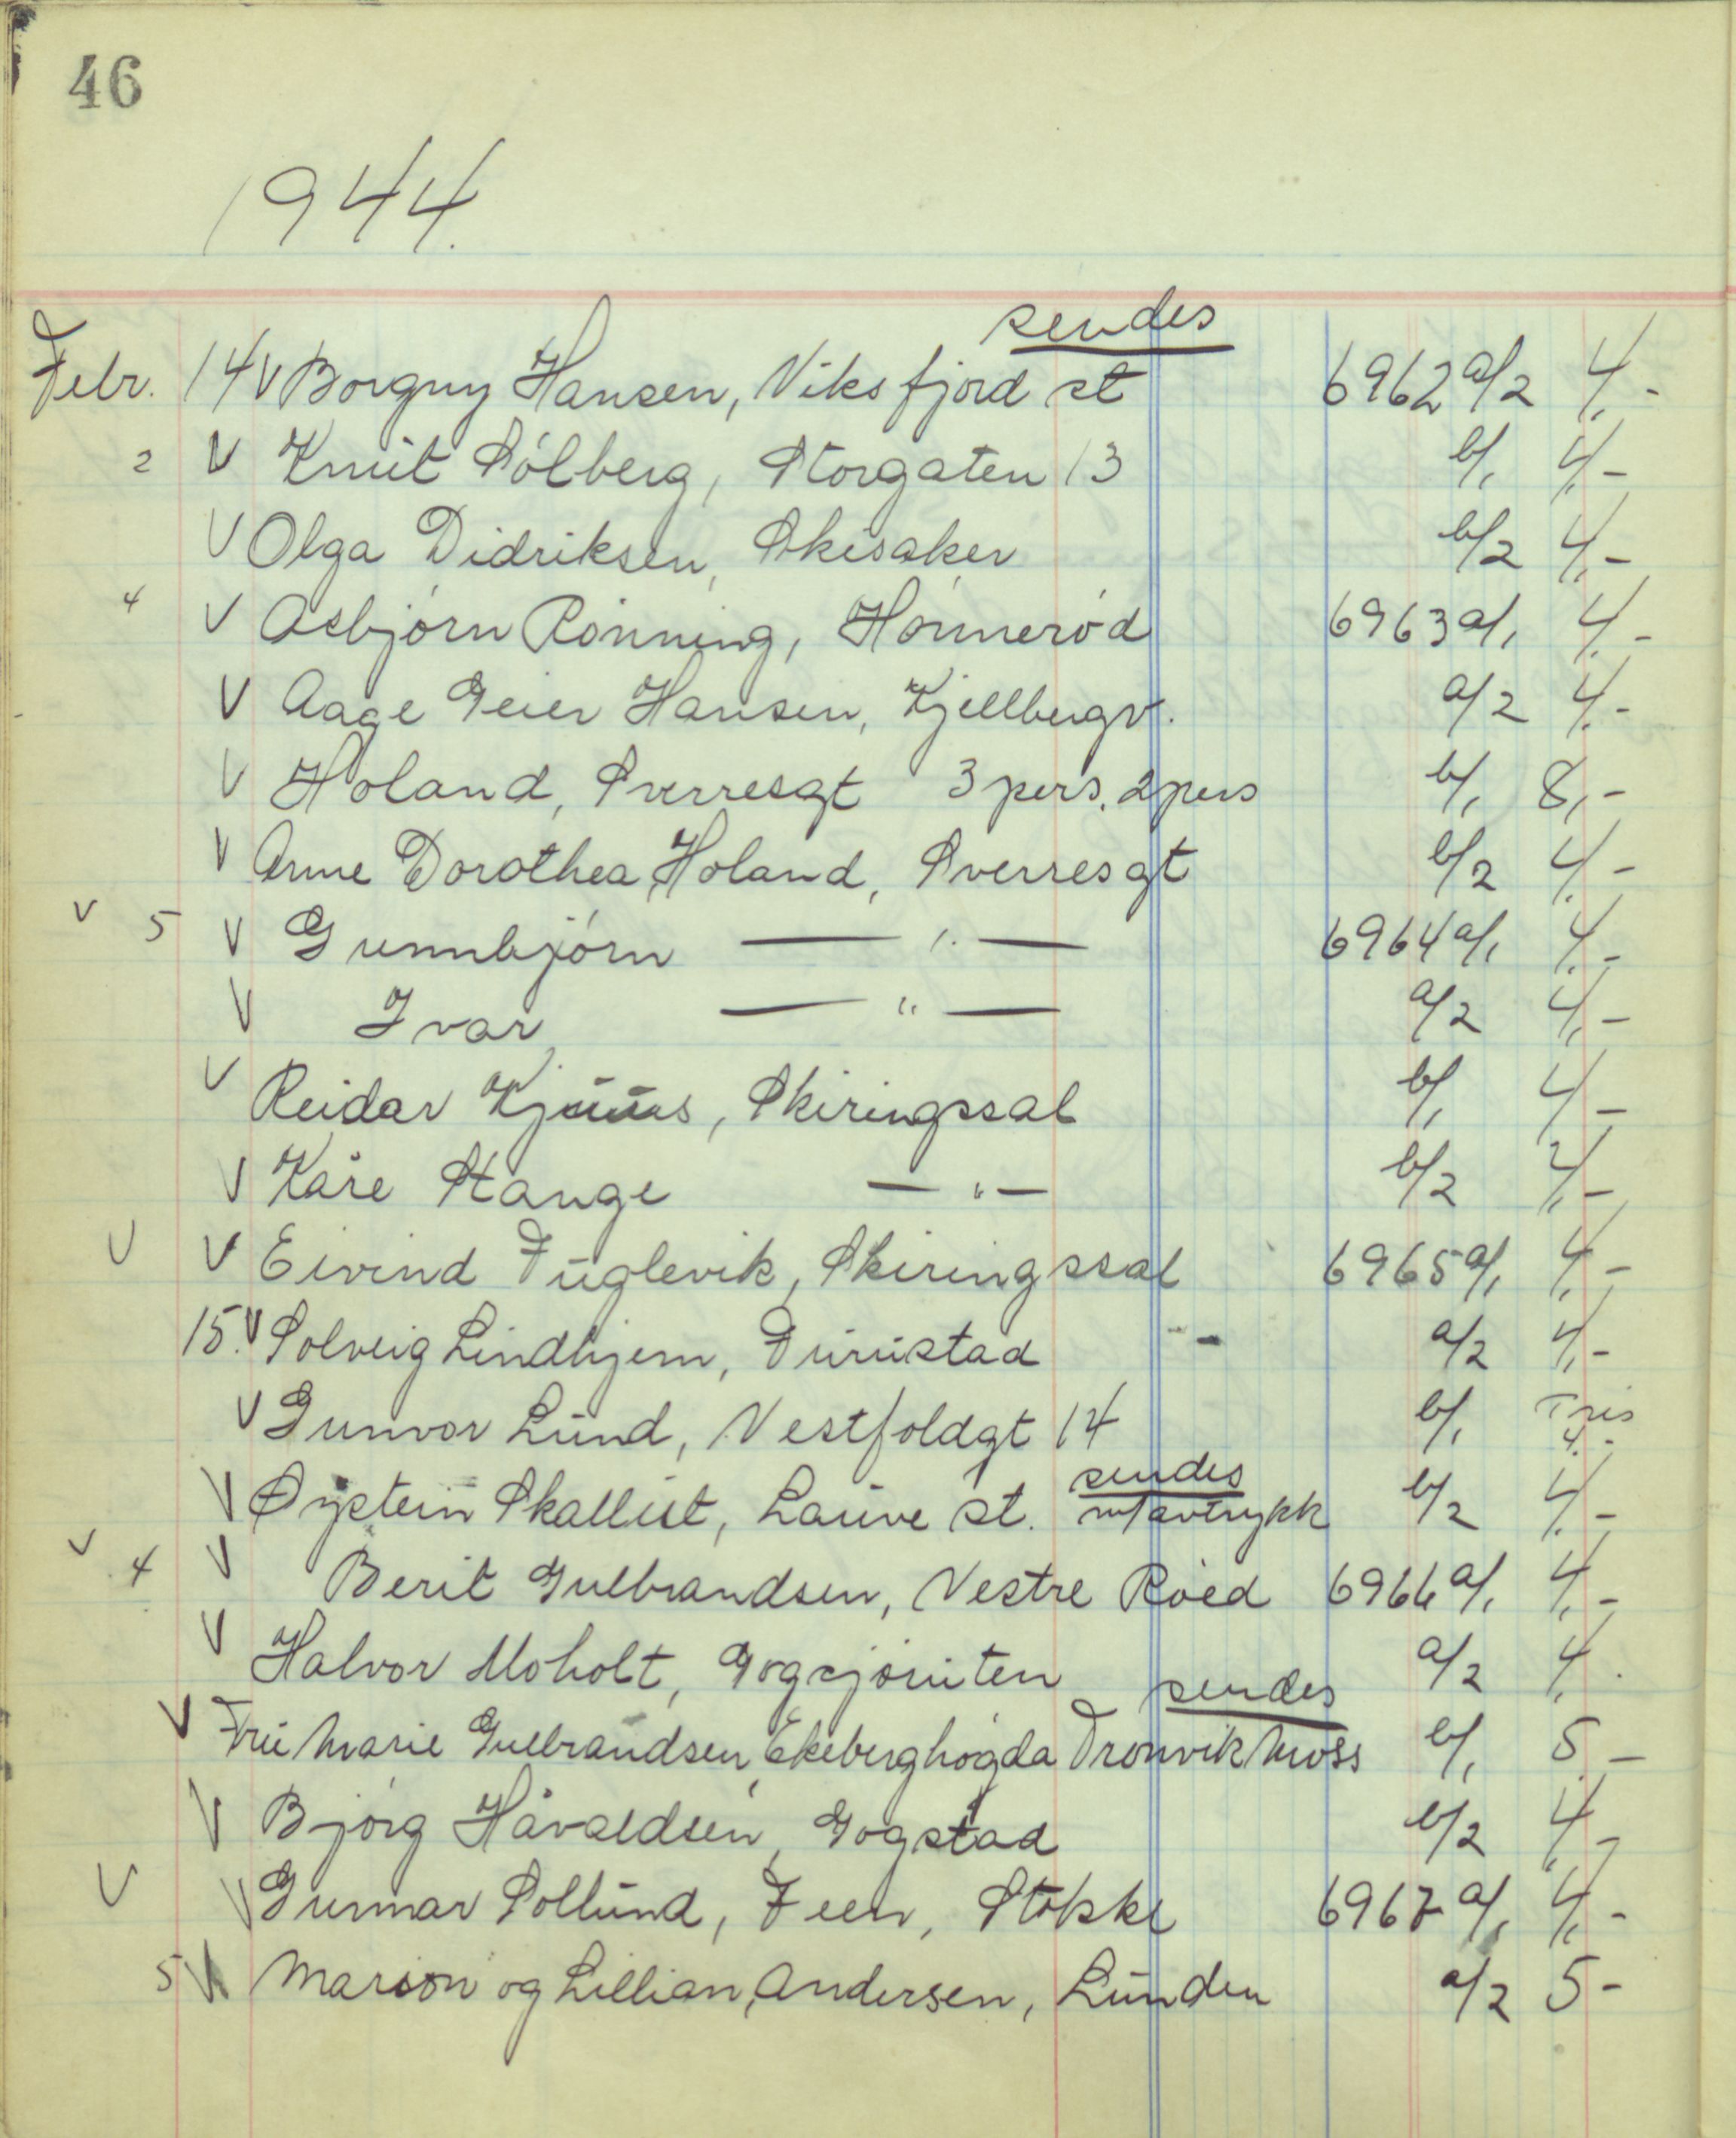 46
1944.
sendes
Febr. 14 V Borgny Hansen, Viksfjord st 6962 a/2 4,-
2 V Knut Sólberg, Storgaten 13 b/1 4,-
V Olga Didriksen, Skisaker b/2 4,-
4 V Asbjórn Rónning, Hónneród 6963 a/1 4,-
V Aage Geier Hansen, Kjellbergv. a/2 4,-
V Holand, Sverresgt 3 pers. 2 pers b/1 8,-
V Anne Dorothea Holand, Sverresgt b/2 4,-
V 5 V Gunnbjórn — " — 6964 a/1 4,-
V Ivar — " — a/2 4,-
V Reidar Skiringssal b/1 4,-
V Kåre Stange — " — b/2 4,-
V V Eivind Fuglevik, Skiringssal 6965 a/1 4,-
15. V Solveig Lindhjem, Furustad - a/2 4,-
V Gunvor Lund, Vestfoldgt 14 b/1 4,-
sendes
V Øystein Skallist, Lauve st. m/avtrykk b/2 4,-
V 4 V Berit Gulbrandsen, Vestre Róed 6966 a/1 4,-
V Halvor Moholt, a/2 4,
sendes
V Fru Marie Gulbrandsen, Ekeberghógda Tronvik Moss b/1 5 -
V Bjórg Håvaldsen, Gogstad b/2 4,-
V V Gunnar Sollund, Feen, Stokke 6967 a/1 4,-
5 V Marion og Lillian Andersen, Lunden a/2 5-